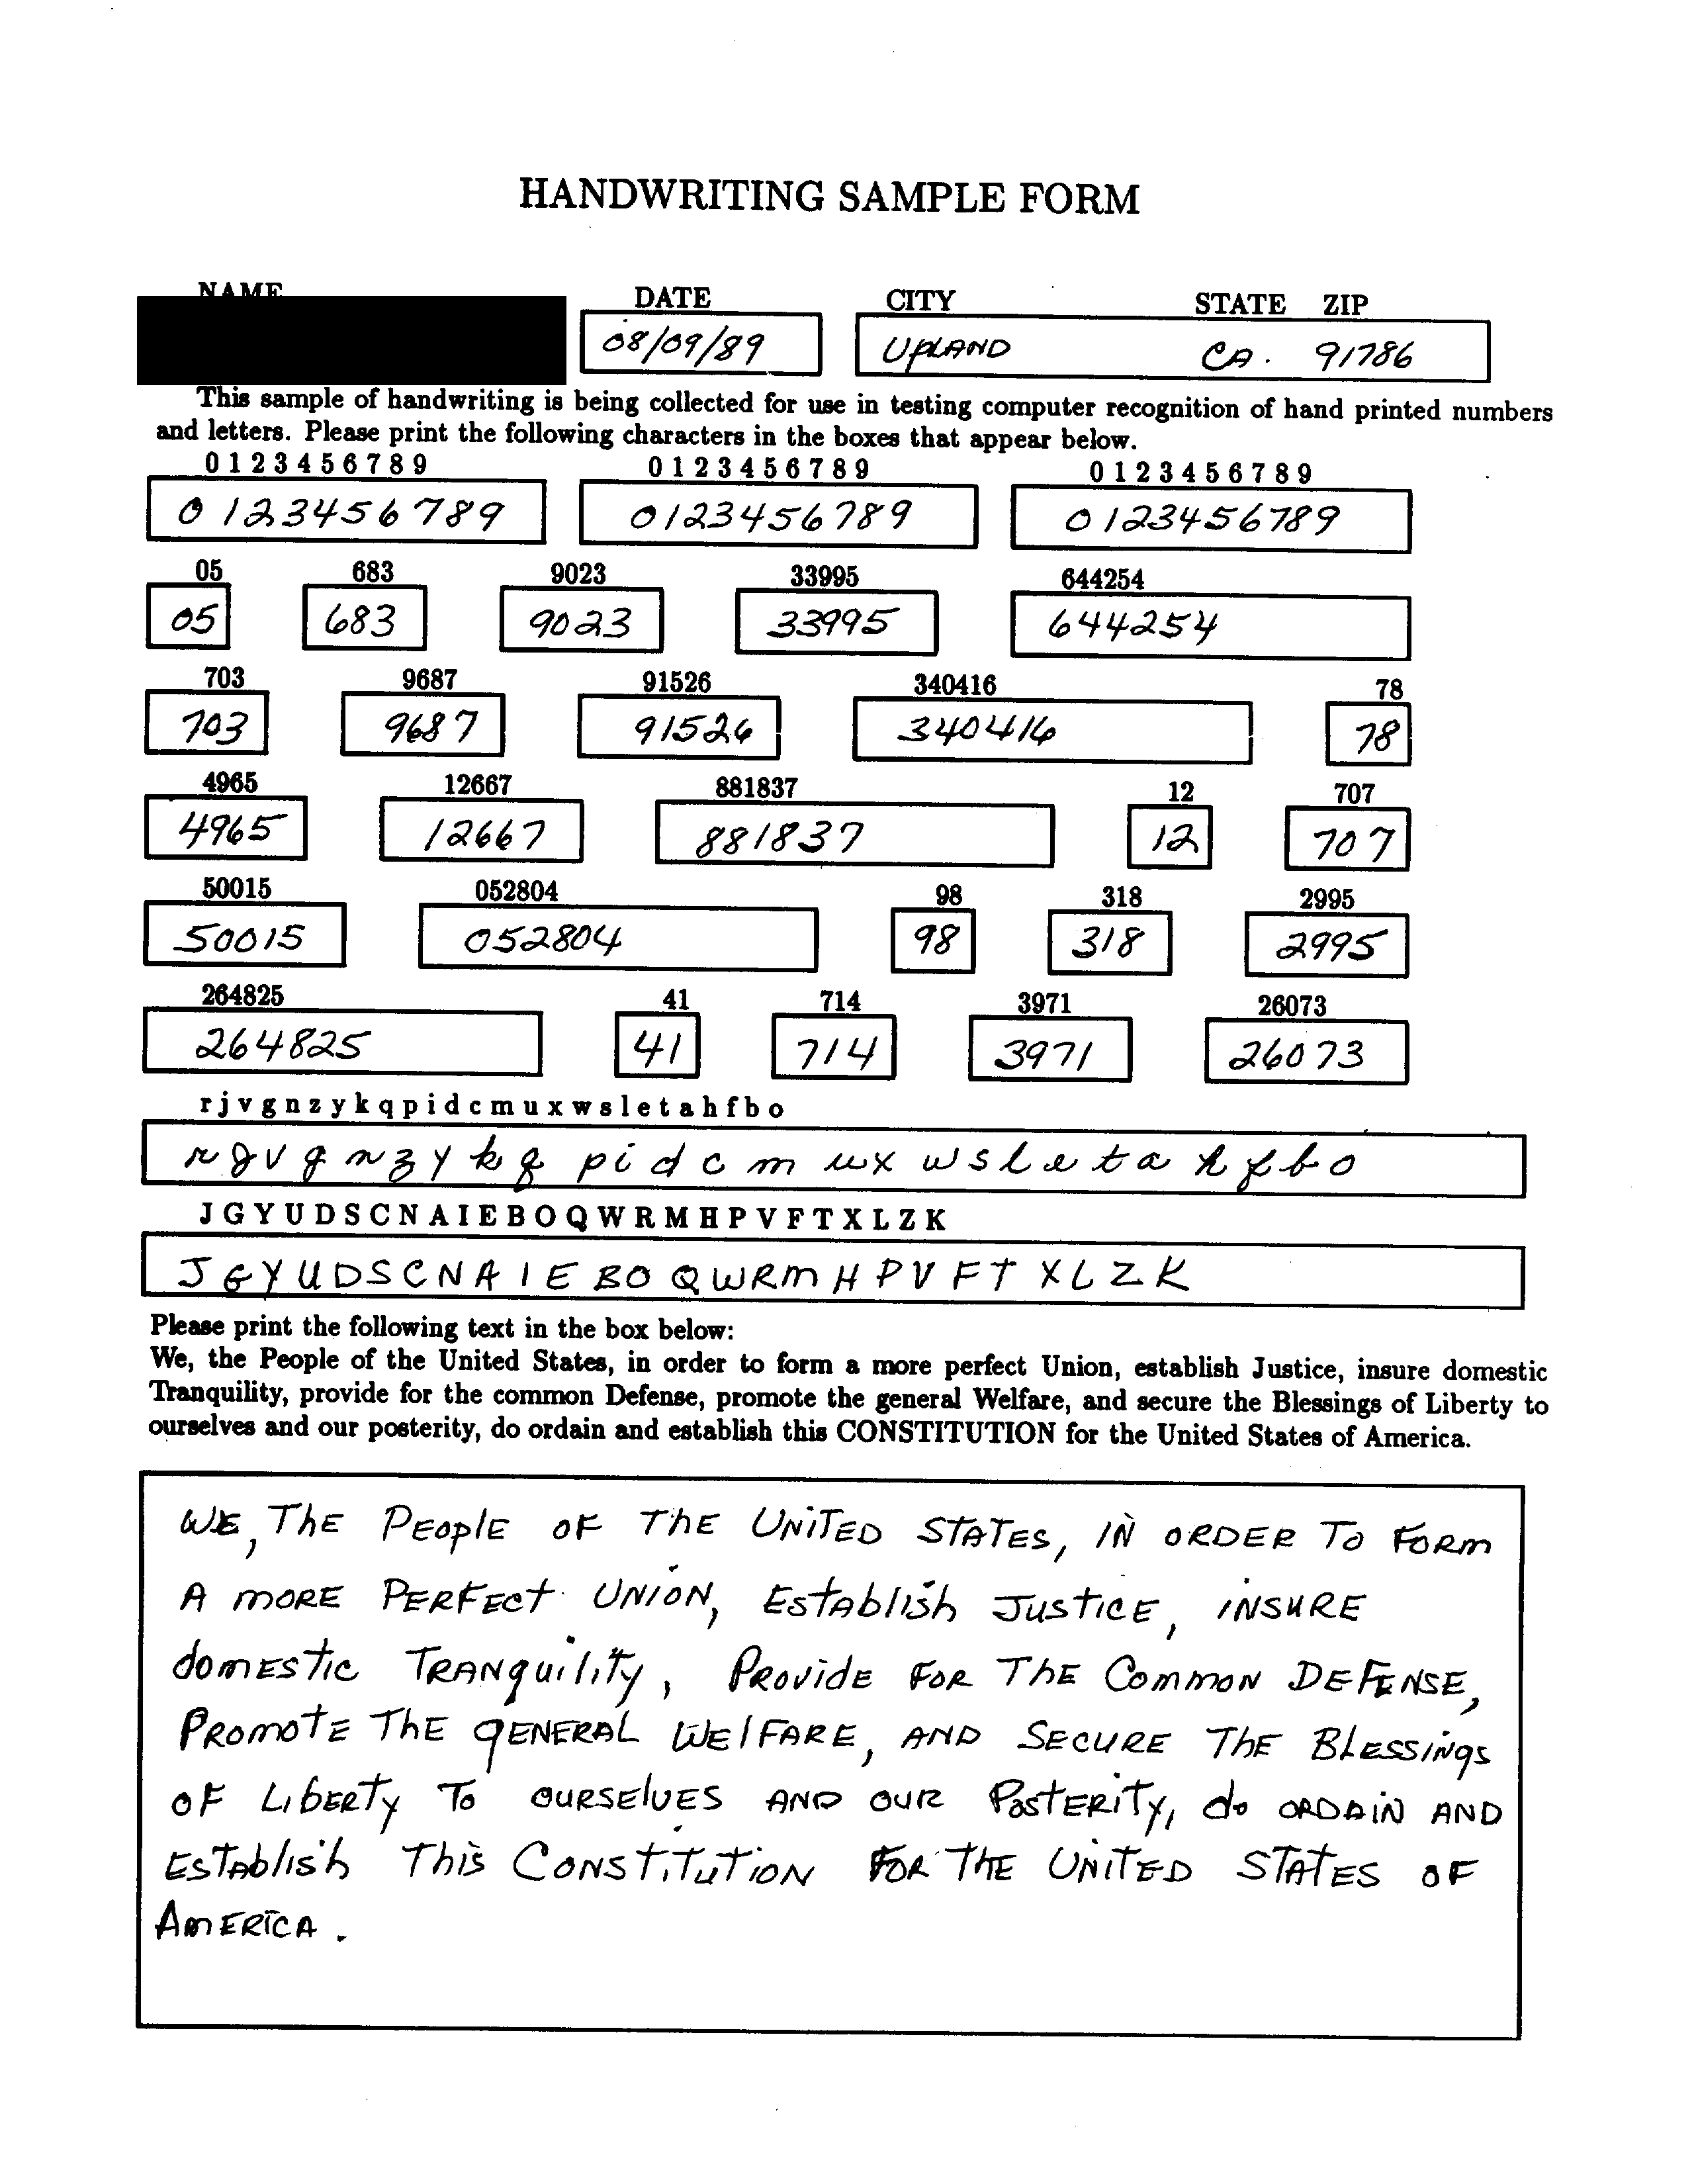 HANDWRITING SAMPLE FORM
NAME DATE CITY STATE ZIP
08/09/89 UPLAND CA. 91786
This sample of handwriting is being collected for use in testing computer recognition of hand printed numbers
and letters. Please print the following characters in the boxes that appear below.
0 1 2 3 4 5 6 7 8 9 0 1 2 3 4 5 6 7 8 9 0 1 2 3 4 5 6 7 8 9
0123456789 0123456789 0123456789
05 683 9023 33995 644254
05 683 9023 33995 644254
703 9687 91526 340416 78
703 9687 91526 340416 78
4965 12667 881837 12 707
4965 12667 881837 12 707
50015 052804 98 318 2995
50015 052804 98 318 2995
264825 41 714 3971 26073
264825 41 714 3971 26073
r j v g n z y k q p i d c m u x w s l e t a h f b o
r j v g n z y k q p i d c m u x w s l e t a h f b o
J G Y U D S C N A I E B O Q W R M H P V F T X L Z K
J G Y U D S C N A I E B O Q W R M H P V F T X L Z K
Please print the following text in the box below:
We, the People of the United States, in order to form a more perfect Union, establish Justice, insure domestic
Tranquility, provide for the common Defense, promote the general Welfare, and secure the Blessings of Liberty to
ourselves and our posterity, do ordain and establish this CONSTITUTION for the United States of America.
WE, ThE PEoplE OF ThE UNiTED STATES, IN ORDER TO FORM
A MORE PERFECT UNION, ESTAblish JUSTICE, INSURE
domESTIC TRANquiliTy, PROViDE FOR THE COMMON DEFENSE,
PROMOTE THE gENERAL WElFARE, AND SECURE THE BLESSINgS
OF LibERTy TO OURSElVES AND OUR POSTERiTy, do ORDAIN AND
ESTAblish This CONSTITUTION FOR THE UNiTED STATES OF
AMERICA.